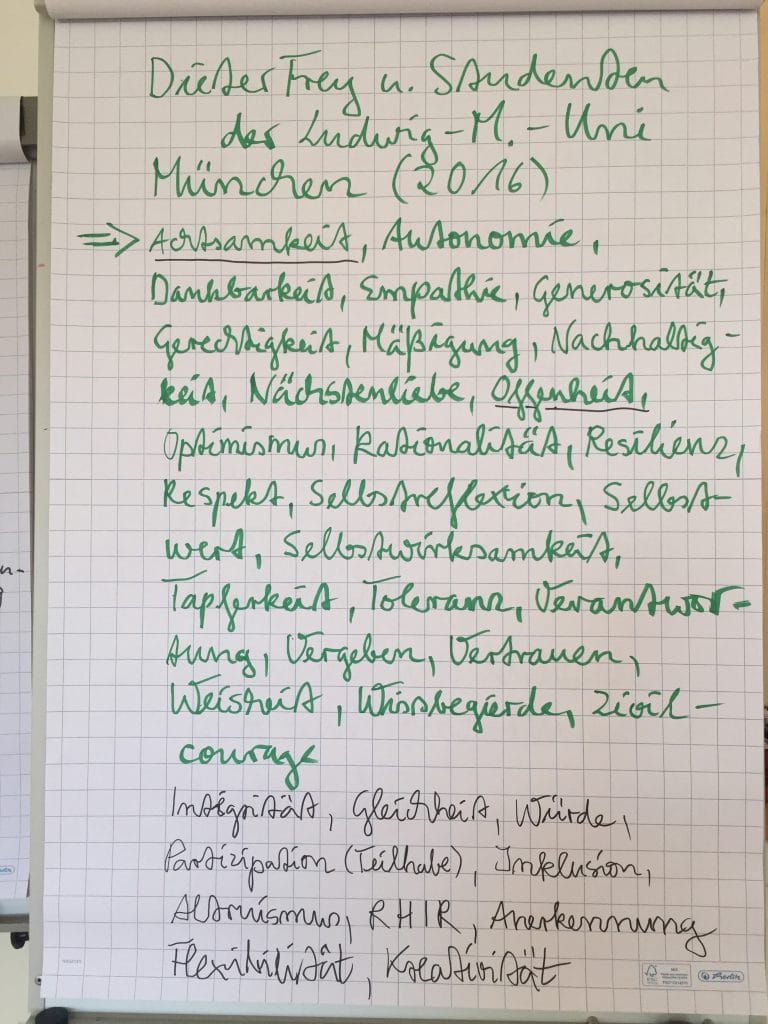 Dieter Frey u. Studenten
der Ludwig-M.-Uni
München (2016)
⇒ Achtsamkeit, Autonomie,
Dankbarkeit, Empathie, Generosität,
Gerechtigkeit, Mäßigung, Nachhaltig-
keit, Nächstenliebe, Offenheit,
Optimismus, Rationalität, Resilienz,
Respekt, Selbstreflexion, Selbst-
wert, Selbstwirksamkeit,
Tapferkeit, Toleranz, Verantwor-
tung, Vergeben, Vertrauen,
Weisheit, Wissbegierde, Zivil-
courage
Integrität, Gleichheit, Würde,
Partizipation (Teilhabe), Inklusion,
Altruismus, RHIR, Anerkennung
Flexibilität, Kreativität
n-
FSC
MIX
Berlin